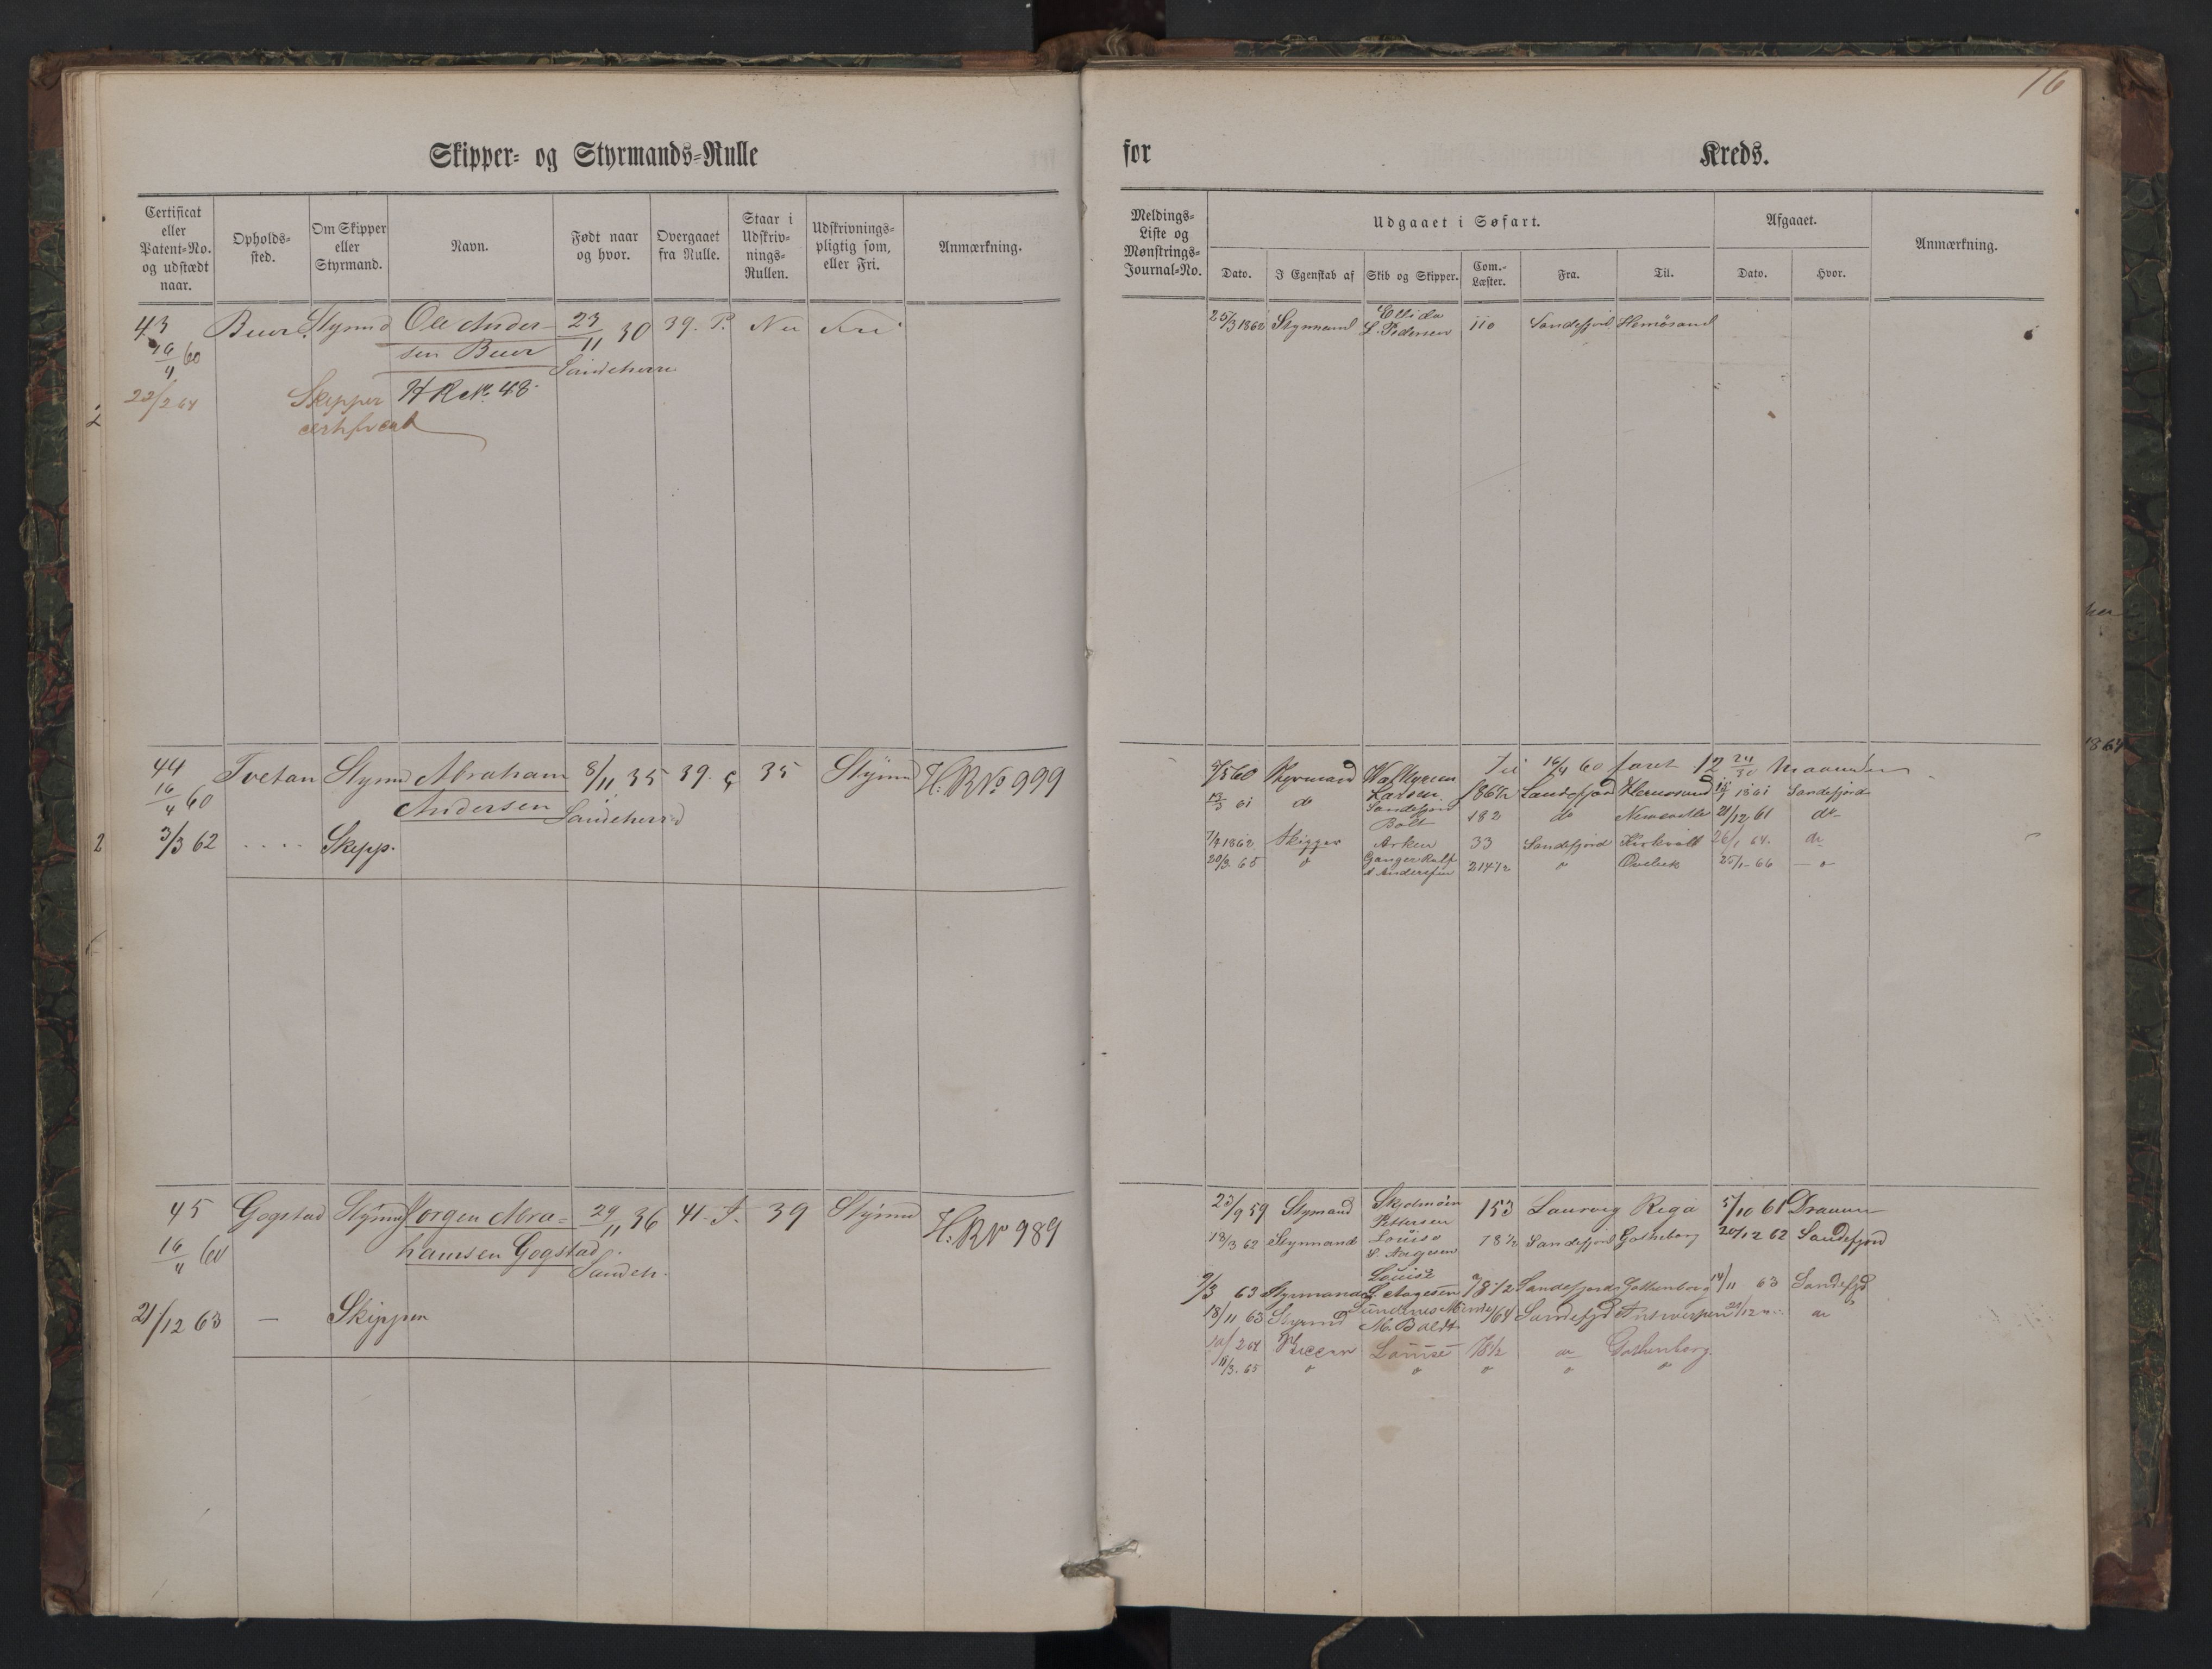 16
Skipper- og Styrmands-Rulle
for Kreds.
Certificat eller Patent-No. og udstædt naar.
Opholds-sted.
Om Skipper eller Styrmand.
Navn.
Født naar og hvor.
Overgaaet fra Rulle.
Staar i Udskriv-nings-Rullen.
Udskrivnings-pligtig som, eller Fri.
Anmærkning.
Meldings-Liste og Mønstrings-Journal-No.
Udgaaet i Søfart.
Dato.
I Egenskab af
Skib og Skipper.
Com.-Læster.
Fra.
Til.
Afgaaet.
Dato.
Hvor.
Anmærkning.
43 Buer Styrmd Ole Ander- 23/11 30 39. P. Nei Fri
16/4 60 sen Buer Sandeherre
22/2 64 Skipper H R No. 48.
certificat
25/3 1862 Styrmand Ellida 110 Sandefjord Hernösand
L. Pedersen
44 Tvetan Styrmd Abraham 8/11 35 39. 35 Styrmd H. R No 999
16/4 60 Andersen Sandeherred
3/3 62 . . . . Skipp.
60 Styrmand Walkyrien Til 16/4 60 faret 12 24/30 Maaneder
13/3 61 do Larsen 186 1/2 Sandefjord Hernosand 1861 Sandefjord
Sandefjord 182 do Newcastle 21/12 61 do
Bolt
1862 Skipper Arken 33 Sandefjord Kirkvall 26/1 64. do
20/3 65 " Ganger Rolf 214 1/2 " 25/1 66 — "
A Andersen
45 Gogstad Styrmd Jorgen Abra- 29/11 36 41. 39 Styrmd H. R No 989
16/4 60 hamsen Gogstad Sandeh.
21/12 63 — Skipper
23/9 59 Stymand Skjolmöen 153 Laurvig Riga 5/10 61 Drammen
Pettersen
18/3 62 Styrmand Louise 78 1/2 Sandefjord Gotheborg 20/12 62 Sandefjord
S. Aagesen
9/3 63 Styrmand Louise 78 1/2 Sandefjord Gothenborg 14/11 63 Sandefjd
S. Aagesen
18/11 63 Styrmd Sundnes Minde 164 Sandefjd Antwerpen
M. Boldt
264 Louise 78 1/2 do Gothenborg
11/3. 65 " " " " "